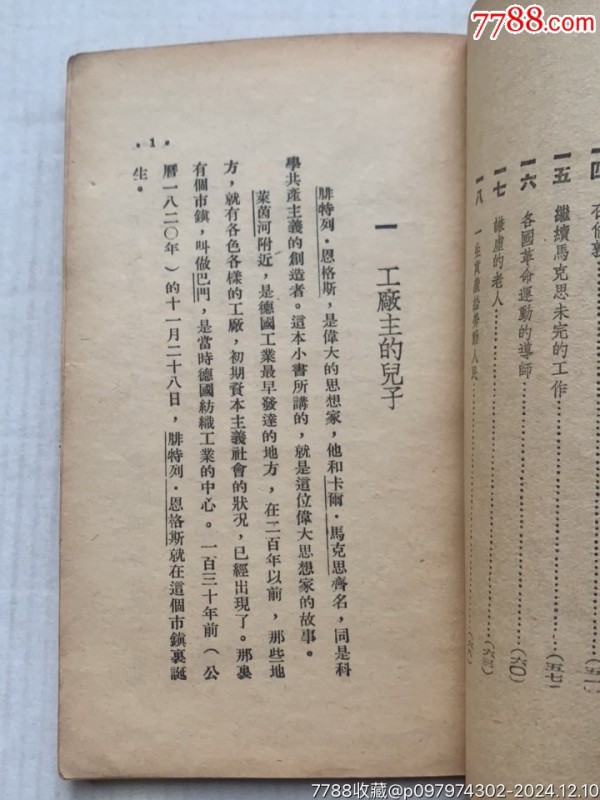 7788.com
一五　繼續馬克思未完的工作……………(五七)
一六　各國革命運動的導師……………(六〇)
一七　謙虛的老人……………(六三)
一八　一生貢獻給勞動人民……………
一　工廠主的兒子
腓特列·恩格斯，是偉大的思想家，他和卡爾·馬克思齊名，同是科
學共產主義的創造者。這本小書所講的，就是這位偉大思想家的故事。
萊茵河附近，是德國工業最早發達的地方，在二百年以前，那些地
方，就有各色各樣的工廠，初期資本主義社會的狀況，已經出現了。那裏
有個市鎮，叫做巴門，是當時德國紡織工業的中心。一百三十年前（公
曆一八二〇年）的十一月二十八日，腓特列·恩格斯就在這個市鎮裏誕
生。
·1·
7788收藏@p097974302-2024.12.10